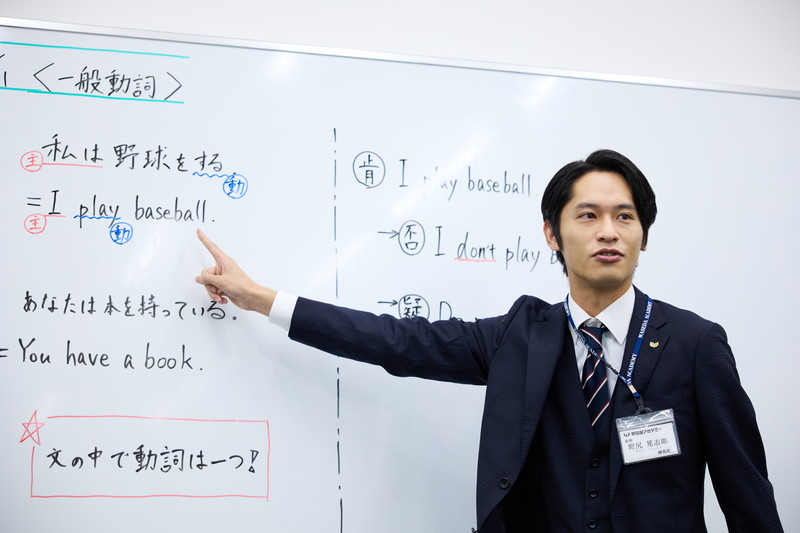 <一般動詞>
私は野球をする
主
動
= I play baseball.
主
動
あなたは本を持っている。
= You have a book.
☆
文の中で動詞は一つ!
肯 I play baseball.
→ 否 I don't play
→ 疑
WASEDA ACADEMY
早稲田アカデミー
野尻 晃志郎